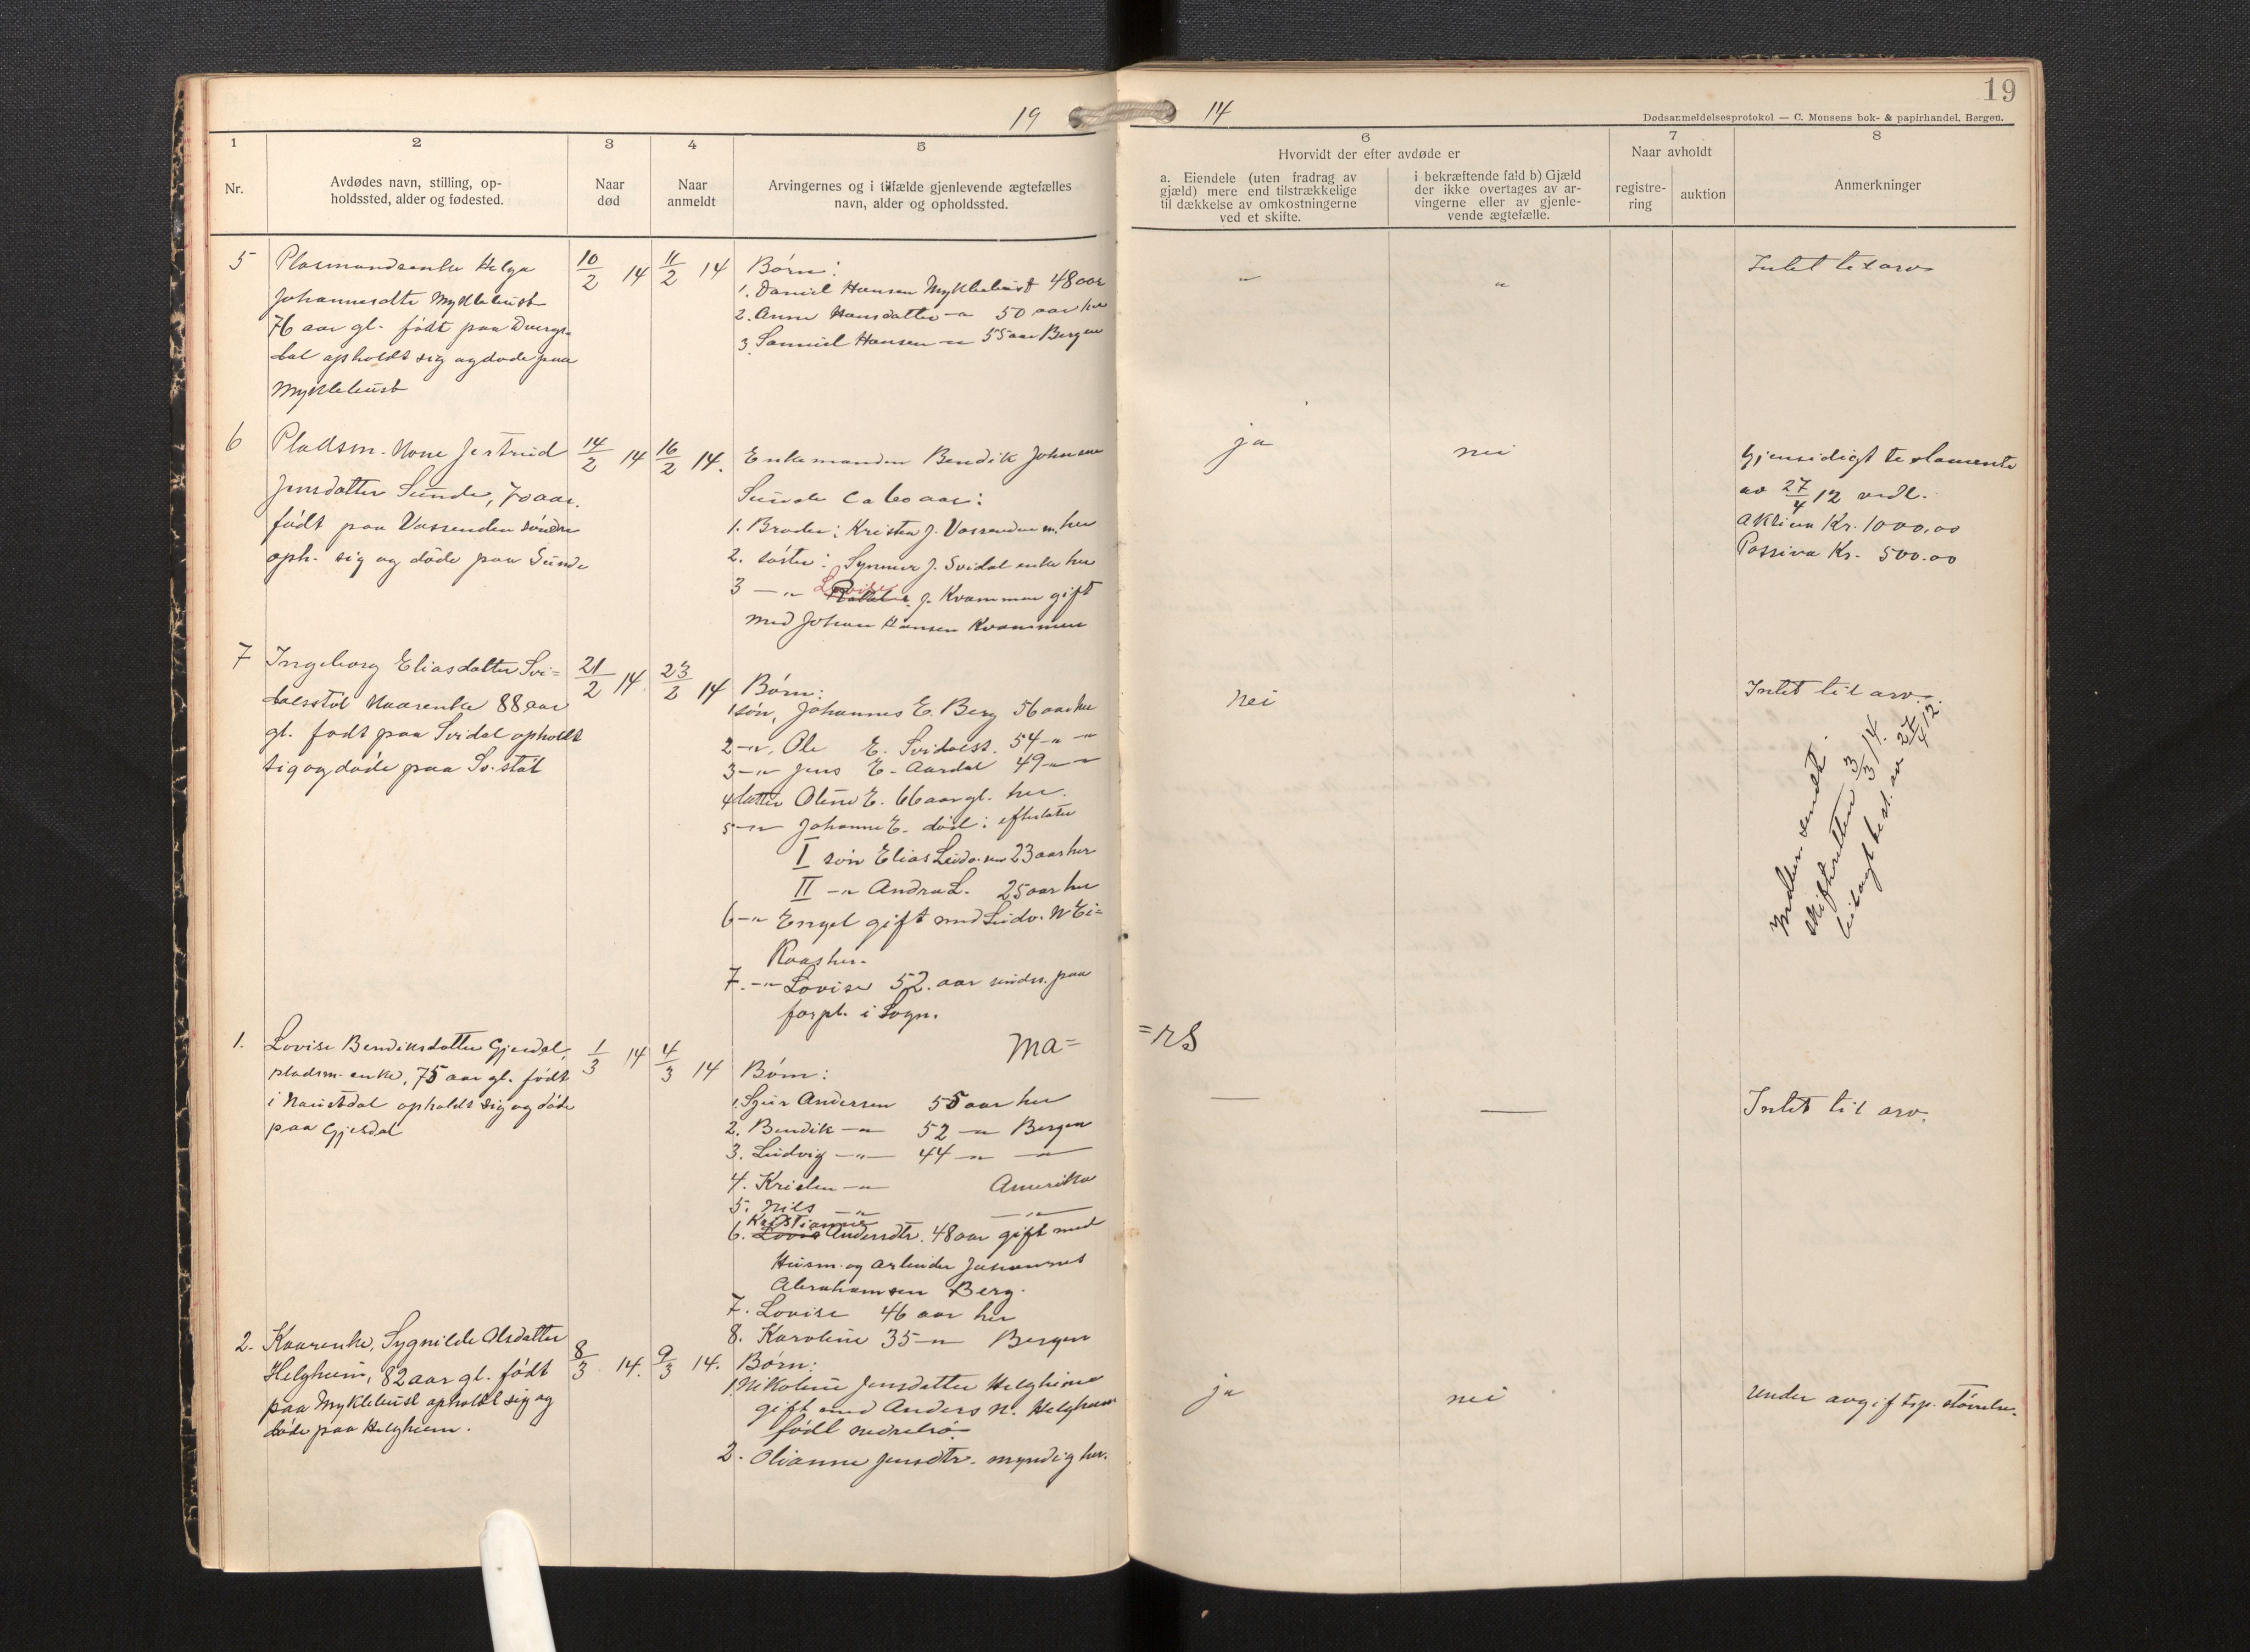 19
19
14
Dødsanmeldelsesprotokol — C. Monsens bok- & papirhandel, Bergen.
1
2
3
4
5
6
7
8
Nr.
Avdødes navn, stilling, op-
holdssted, alder og fødested.
Naar
død
Naar
anmeldt
Arvingernes og i tilfælde gjenlevende ægtefælles
navn, alder og opholdssted.
Hvorvidt der efter avdøde er
a. Eiendele (uten fradrag av
gjæld) mere end tilstrækkelige
til dækkelse av omkostningerne
ved et skifte.
i bekræftende fald b) Gjæld
der ikke overtages av ar-
vingerne eller av gjenle-
vende ægtefælle.
Naar avholdt
registre-
ring
auktion
Anmerkninger
5
Plasmandsenke Helga
Johannesdtr Myklebust
76 aar gl. født paa Dvergs-
dal opholdt sig og døde paa
Myklebust
10/2 14
11/2 14
Børn:
1. Daniel Hansen Myklebust 48 aar
2. Anne Hansdatter —"— 50 aar her
3. Samuel Hansen —"— 55 aar Bergen
"
"
Intet til arv
6
Pladsm. kone Jertrud
Jensdatter Sunde, 70 aar.
født paa Vassenden søndre
oph. sig og døde paa Sunde
14/2 14
16/2 14.
Enkemanden Bendik Johnsen
Sunde ca 60 aar:
1. Broder: Kristen J. Vassenden m. her
2. søster: Synneve J. Svidal enke her
3 —"— Lovise J. Kvammen gift
med Johan Hansen Kvammen
ja
nei
Gjensidigt testamente
av 27/4 12 vedl.
Aktiva Kr. 1000,00
Passiva Kr. 500.00
7
Ingeborg Eliasdatter Svi-
dalsstøl Kaarenke 88 aar
gl. født paa Svidal opholdt
sig og døde paa Sv. støl
21/2 14
23/2 14
Børn:
1 søn, Johannes E. Berg 56 aar her
2 —"—, Ole E. Svidalsst. 54 —"— "
3 —"— Jens E. Aardal 49 —"— "
4 datter Oline E. 66 aar gl. her.
5 —"— Johanne E. død: efterlater
I søn Elias Ludv. sen 23 aar her
II —"— Andrea L. 25 aar her
6 —"— Engel gift med Ludv. N Ei=
kaas her.
7. —"— Lovise 52. aar under. paa
forpl. i Sogn.
nei
Intet til arv.
Indber. sendt
skifteretten 3/3 14.
bilagt test. av 27/4 12.
Ma=
=rs
1.
Lovise Bendiksdatter Gjesdal,
pladsm. enke, 75 aar gl. født
i Naustdal opholdt sig og døde
paa Gjesdal
1/3 14
4/3 14
Børn:
1. Sjur Andersen 55 aar her
2. Bendik —"— 52 —"— Bergen
3. Ludvig —"— 44 —"— —"—
4. Kristen —"— Amerika
5. Nils —"— —"—
Kristianne
6. Lovise Andersdtr. 48 aar gift med
Husm. og arbeider Johannes
Abrahamsen Berg.
7. Lovise 46 aar her
8. Karoline 35 —"— Bergen
—
—
Intet til arv.
2.
Kaarenke, Sygnilde Olsdatter
Helgheim, 82 aar gl. født
paa Myklebust opholdt sig og
døde paa Helgheim.
8/3 14.
9/3 14.
Børn:
1. Nikoline Jensdatter Helgheim
gift med Anders N. Helgheim
født nedrebø.
2. Olianne Jensdtr. myndig her.
ja
nei
Under avgiftsp. størrelse.